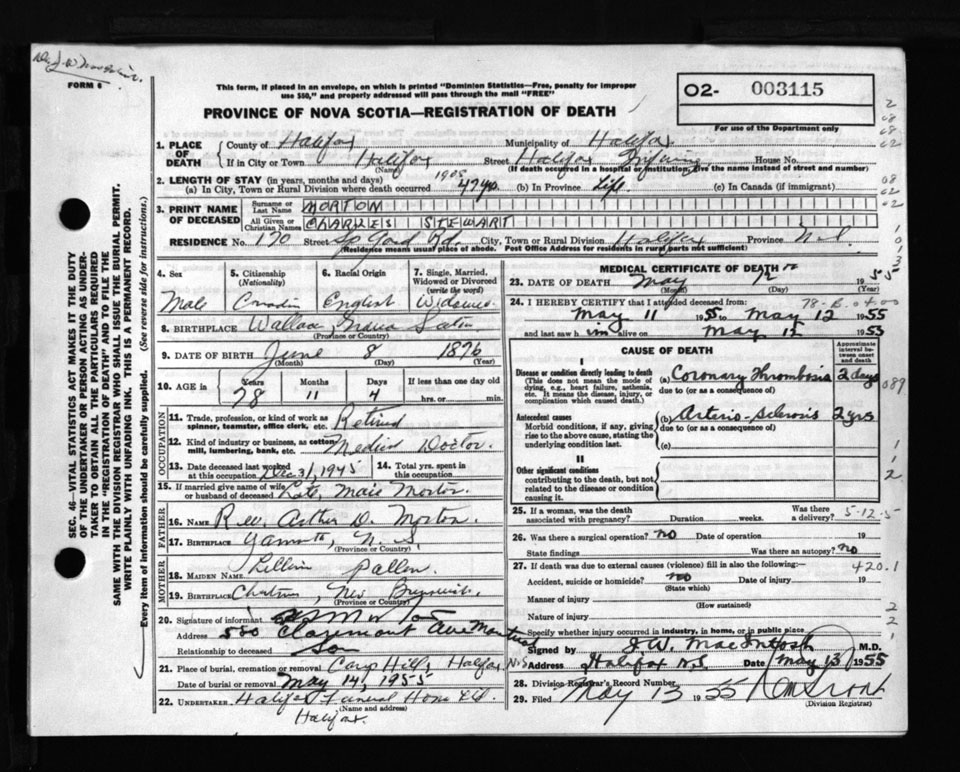 FORM 6
This form, if placed in an envelope, on which is printed "Dominion Statistics—Free, penalty for improper
use $50," and properly addressed will pass through the mail "FREE"
PROVINCE OF NOVA SCOTIA—REGISTRATION OF DEATH
02- 003115
For use of the Department only
1. PLACE OF DEATH
County of Halifax Municipality of Halifax
If in City or Town Halifax Street Halifax Infirmary House No.
(Name) (If death occurred in a hospital or institution, give the name instead of street and number)
2. LENGTH OF STAY (in years, months and days) 1908
(a) In City, Town or Rural Division where death occurred 47 yrs. (b) In Province Life (c) In Canada (if immigrant)
3. PRINT NAME OF DECEASED
Surname or Last Name MORTON
All Given or Christian Names CHARLES STEWART
RESIDENCE No. 170 Street Rd. City, Town or Rural Division Halifax Province N.S.
(Residence means usual place of abode. Post Office Address for residents in rural parts not sufficient)
4. Sex
Male
5. Citizenship
(Nationality)
Canadian
6. Racial Origin
English
7. Single, Married, Widowed or Divorced
(write the word)
Widowed
8. BIRTHPLACE Wallace, Nova Scotia
(Province or Country)
9. DATE OF BIRTH June 8 1876
(Month) (Day) (Year)
10. AGE in Years Months Days If less than one day old
78 11 4 hrs. or min.
OCCUPATION
11. Trade, profession, or kind of work as
spinner, teamster, office clerk, etc. Retired
12. Kind of industry or business, as cotton
mill, lumbering, bank, etc. Medical Doctor.
13. Date deceased last worked
at this occupation Dec 31, 1945
14. Total yrs. spent in
this occupation
15. If married give name of wife
or husband of deceased Late, Maie Morton.
FATHER
16. NAME Rev. Arthur D. Morton.
17. BIRTHPLACE Yarmouth, N.S.
(Province or Country)
MOTHER
18. MAIDEN NAME Lillian Pallen
19. BIRTHPLACE Chatham, New Brunswick.
(Province or Country)
20. Signature of informant
Address 580 Claremont Ave Montreal
Relationship to deceased Son
21. Place of burial, cremation or removal Camp Hill, Halifax N.S
Date of burial or removal May 14, 1955
22. UNDERTAKER Halifax Funeral Home Ltd.
(Name and address)
Halifax.
MEDICAL CERTIFICATE OF DEATH
23. DATE OF DEATH May 12 1955
(Month) (Day)
24. I HEREBY CERTIFY that I attended deceased from:
78-B.04.00
May 11 1955 to May 12 1955
and last saw him alive on May 12 1955
CAUSE OF DEATH
Approximate interval between onset and death
I
Disease or condition directly leading to death
(This does not mean the mode of
dying, e.g., heart failure, asthenia,
etc. It means the disease, injury, or
complication which caused death.)
(a) Coronary Thrombosis 2 days
due to (or as a consequence of)
089
Antecedent causes
Morbid conditions, if any, giving
rise to the above cause, stating the
underlying condition last.
(b) Arterio-Sclerosis 2 yrs
due to (or as a consequence of)
(c)
II
Other significant conditions
contributing to the death, but not
related to the disease or condition
causing it.
25. If a woman, was the death
associated with pregnancy? Duration weeks. Was there a delivery?
5-12-5
26. Was there a surgical operation? no Date of operation 19
State findings Was there an autopsy? no
27. If death was due to external causes (violence) fill in also the following:—
420.1
Accident, suicide or homicide? no Date of injury 19
(State which)
Manner of injury
(How sustained)
Nature of injury
Specify whether injury occurred in industry, in home, or in public place
Signed by J.W. MacIntosh M.D.
Address Halifax N.S. Date May 13 1955
28. Division Registrar's Record Number
29. Filed May 13 1955
(Division Registrar)
SEC. 46—VITAL STATISTICS ACT MAKES IT THE DUTY
OF THE UNDERTAKER OR PERSON ACTING AS UNDER-
TAKER TO OBTAIN ALL THE PARTICULARS REQUIRED
IN THE "REGISTRATION OF DEATH" AND TO FILE THE
SAME WITH THE DIVISION REGISTRAR WHO SHALL ISSUE THE BURIAL PERMIT.
WRITE PLAINLY WITH UNFADING INK. THIS IS A PERMANENT RECORD.
Every item of information should be carefully supplied. (See reverse side for instructions.)